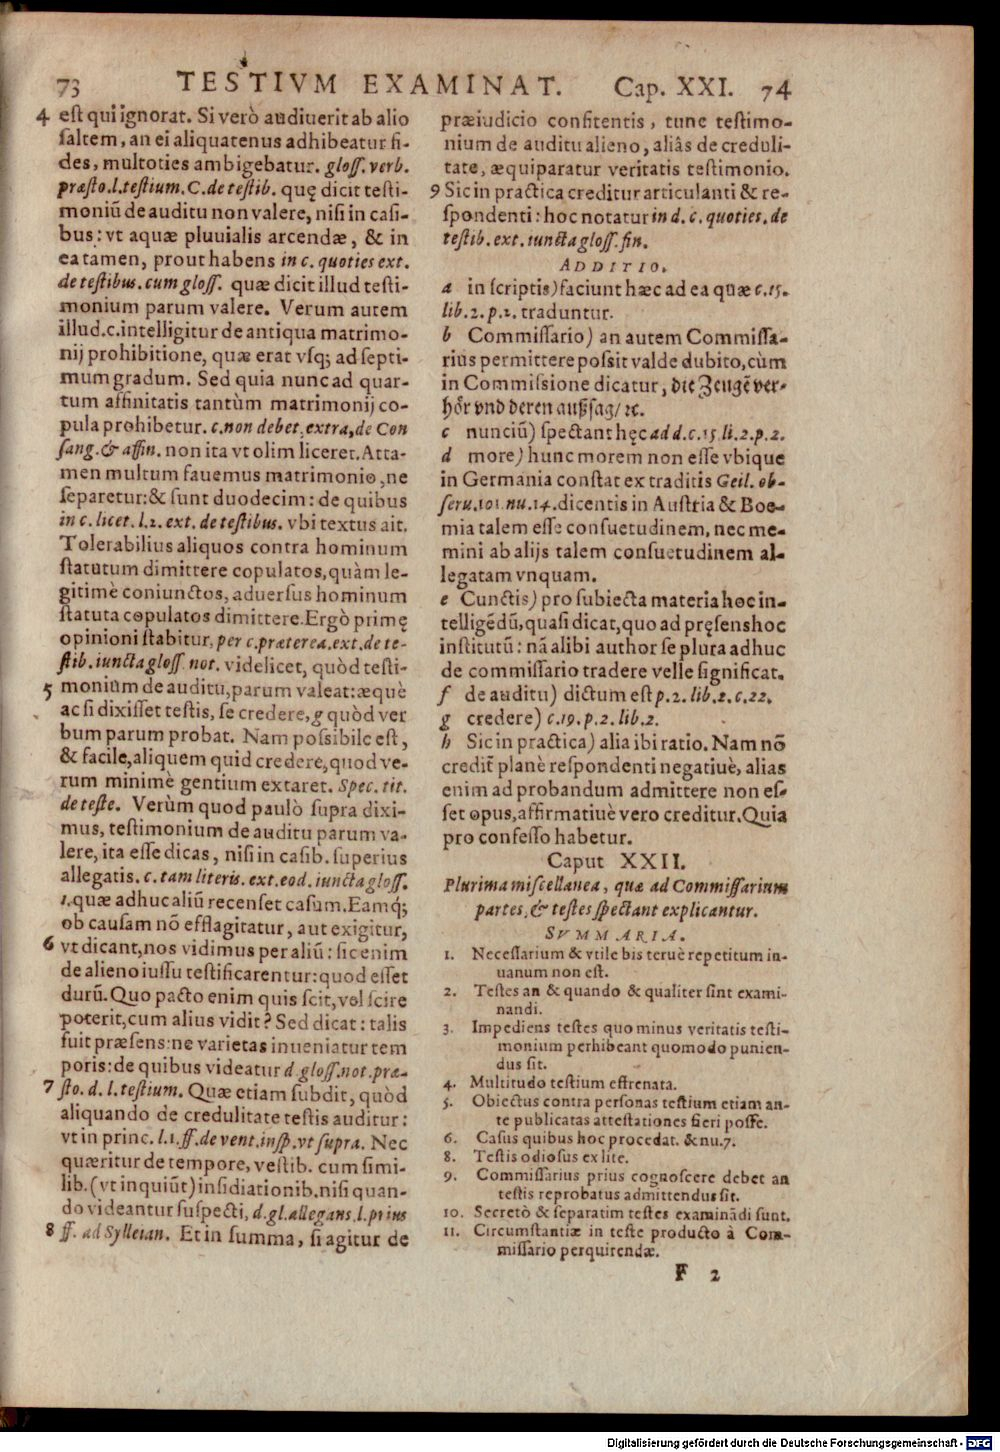 73 TESTIVM EXAMINAT. Cap. XXI. 74
4 est qui ignorat. Si verò audiuerit ab alio
saltem, an ei aliquatenus adhibeatur fi-
des, multoties ambigebatur. gloss. verb.
præsto. l. testium. C. de testib. quę dicit testi-
moniũ de auditu non valere, nisi in casi-
bus: vt aquæ pluuialis arcendæ, & in
ea tamen, prout habens in c. quoties ext.
de testibus. cum gloss. quæ dicit illud testi-
monium parum valere. Verum autem
illud. c. intelligitur de antiqua matrimo-
nij prohibitione, quæ erat vsq; ad septi-
mum gradum. Sed quia nunc ad quar-
tum affinitatis tantùm matrimonij co-
pula prohibetur. c. non debet, extra, de Con
sang. & affin. non ita vt olim liceret. Atta-
men multum fauemus matrimonio, ne
separetur: & sunt duodecim: de quibus
in c. licet. l. 2. ext. de testibus. vbi textus ait.
Tolerabilius aliquos contra hominum
statutum dimittere copulatos, quàm le-
gitimè coniunctos, aduersus hominum
statuta copulatos dimittere. Ergò primę
opinioni stabitur, per c. præterea. ext. de te-
stib. iuncta gloss. not. videlicet, quòd testi-
5 monium de auditu, parum valeat: æquè
ac si dixisset testis, se credere, g quòd ver
bum parum probat. Nam possibile est,
& facile, aliquem quid credere, quod ve-
rum minimè gentium extaret. Spec. tit.
de teste. Verùm quod paulò supra dixi-
mus, testimonium de auditu parum va-
lere, ita esse dicas, nisi in casib. superius
allegatis. c. tam literis. ext. eod. iuncta gloss.
1. quæ adhuc aliũ recenset casum. Eamq́;
ob causam nõ efflagitatur, aut exigitur,
6 vt dicant, nos vidimus per aliũ: sic enim
de alieno iussu testificarentur: quod esset
durũ. Quo pacto enim quis scit, vel scire
poterit, cum alius vidit? Sed dicat: talis
fuit præsens: ne varietas inueniatur tem
poris: de quibus videatur d. gloss. not. præ-
7 sto. d. l. testium. Quæ etiam subdit, quòd
aliquando de credulitate testis auditur:
vt in princ. l. 1. ff. de vent. insp. vt supra. Nec
quæritur de tempore, vestib. cum simi-
lib. (vt inquiũt) insidiationib. nisi quan-
do videantur suspecti, d. gl. allegans. l. prius
8 ff. ad Sylleian. Et in summa, si agitur de
præiudicio confitentis, tunc testimo-
nium de auditu alieno, aliâs de creduli-
tate, æquiparatur veritatis testimonio.
9 Sic in practica creditur articulanti & re-
spondenti: hoc notatur in d. c. quoties. de
testib. ext. iuncta gloss. fin.
ADDITIO.
a in scriptis) faciunt hæc ad ea quæ c. 15.
lib. 2. p. 2. traduntur.
b Commissario) an autem Commissa-
rius permittere possit valde dubito, cùm
in Commissione dicatur, die Zeugẽ ver-
hör vnd deren außsag/ ꝛc.
c nunciũ) spectant hęc ad d. c. 15. li. 2. p. 2.
d more) hunc morem non esse vbique
in Germania constat ex traditis Geil. ob-
seru. 101. nu. 14. dicentis in Austria & Boe-
mia talem esse consuetudinem, nec me-
mini ab alijs talem consuetudinem al-
legatam vnquam.
e Cunctis) pro subiecta materia hoc in-
telligẽdũ, quasi dicat, quo ad pręsens hoc
institutũ: nã alibi author se plura adhuc
de commissario tradere velle significat.
f de auditu) dictum est p. 2. lib. 2. c. 22.
g credere) c. 19. p. 2. lib. 2.
h Sic in practica) alia ibi ratio. Nam nõ
credit̃ planè respondenti negatiuè, alias
enim ad probandum admittere non es-
set opus, affirmatiuè vero creditur. Quia
pro confesso habetur.
Caput XXII.
Plurima miscellanea, quæ ad Commissarium
partes, & testes spectant explicantur.
SVMMARIA.
1. Necessarium & vtile bis teruè repetitum in-
uanum non est.
2. Testes an & quando & qualiter sint exami-
nandi.
3. Impediens testes quo minus veritatis testi-
monium perhibeant quomodo punien-
dus sit.
4. Multitudo testium effrenata.
5. Obiectus contra personas testium etiam an-
te publicatas attestationes fieri posse.
6. Casus quibus hoc procedat. & nu. 7.
8. Testis odiosus ex lite.
9. Commissarius prius cognoscere debet an
testis reprobatus admittendus sit.
10. Secretò & separatim testes examinãdi sunt.
11. Circumstantiæ in teste producto à Com-
missario perquirendæ.
F 2
Digitalisierung gefördert durch die Deutsche Forschungsgemeinschaft - DFG